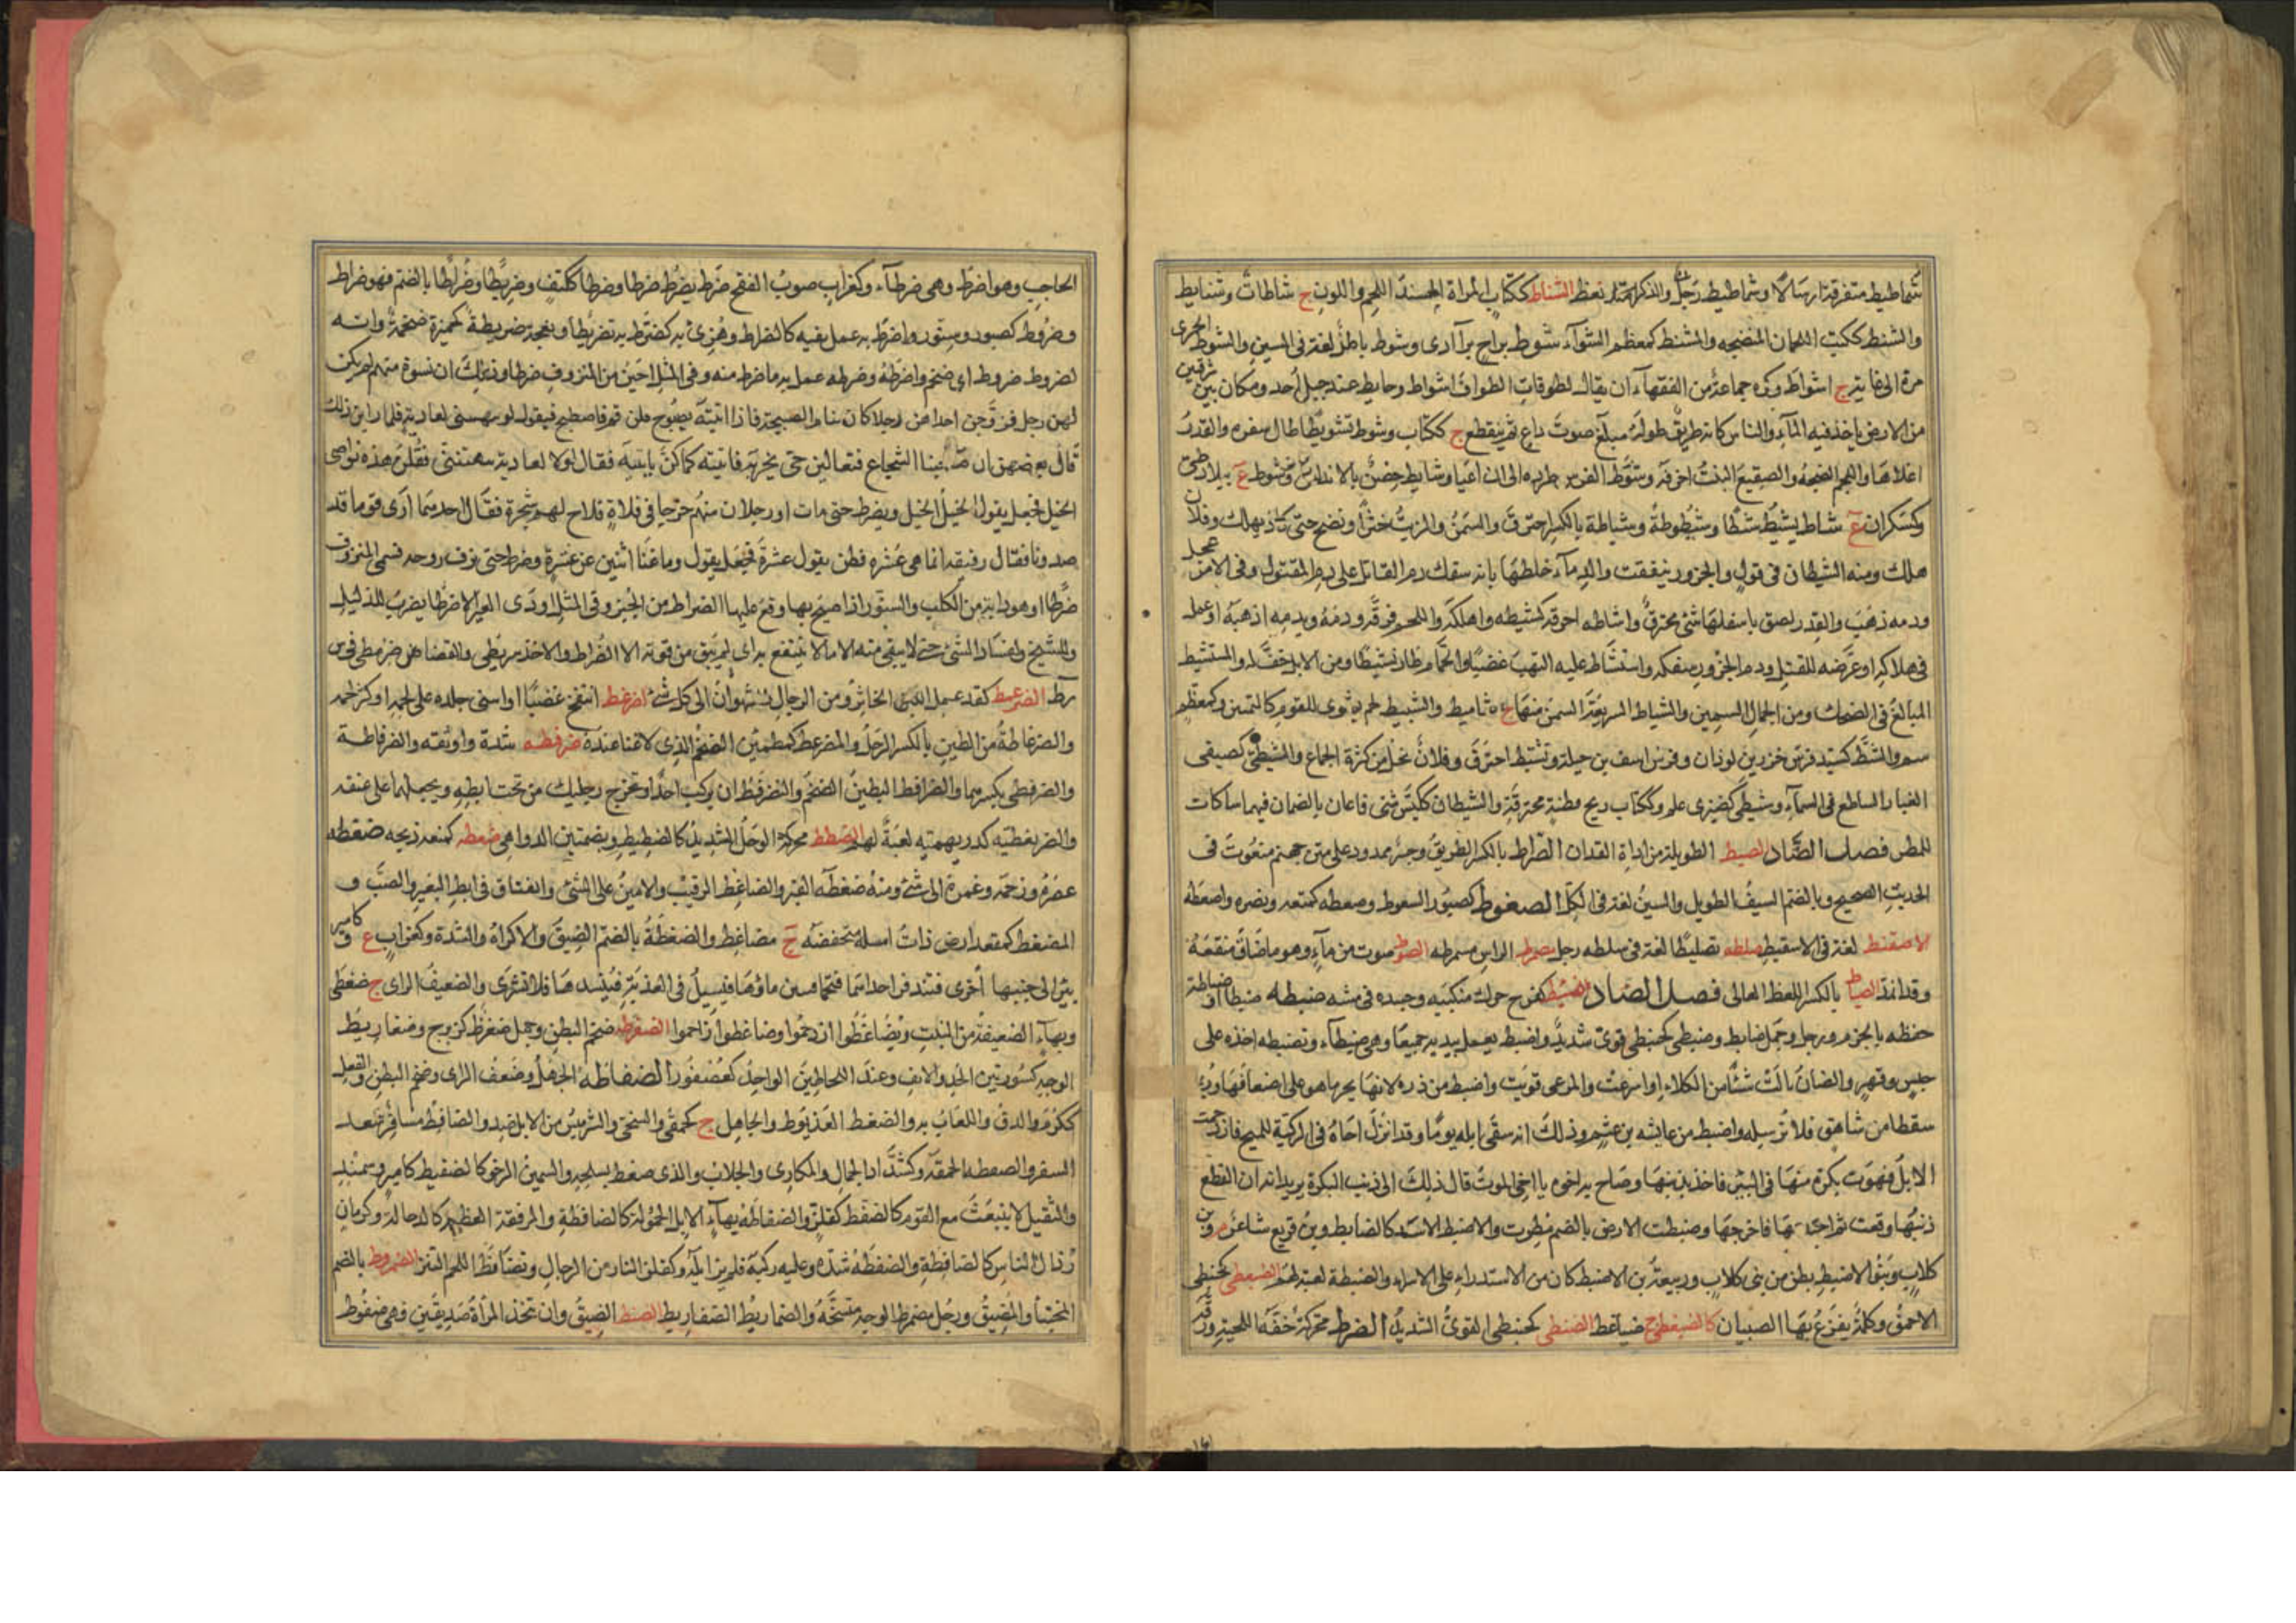 شماطيط متفرقة ارسالا وشماطيط رجل والذكر نعظ الشناط ككتاب المراة الحسنة اللحم واللون ج شناطات وشنايط
والشنط ككتب اللحمان المنضجه والمشنط كمعظم الشوآء شوط براح برآ آدى وشوط باطل لغة فى السين والشوط الجرى
مرة الى غاية ج اشواط وكره جماعة من الفقهاء ان يقال لطوفات الطواف اشواط وحايط عند جبل أحد ومكان بين شرفين
من الارض ياخذ فيه المآء والناس كانه طريق طوله مبلغ صوت داع ثم ينقطع ج ككتاب وشوط تشويطا طال سفره والقدر
اغلاها واللحم انضجه والصقيع النبت احرقه وتشوط الفرس طرده الى ان اعيا وشايط حصن بالاندلس وشوط ع ببلاد طى
وكسكران ع شاط يشيط شيطا وشيطوطة وشياطة بالكسر احترق والسمن والزيت خثرا ونضج حتى كاد يهلك وفلان
هلك ومنه الشيطان فى قول والجزور ينفقت والدمآء خلطها بانه سفك دم القاتل على دم المقتول وفى الامر عجل
ودمه ذهب والقدر لصق باسفلها شئ محترق واشاطه احرقه كشيطه واهلكه واللحم فرقه ودمه وبدمه اذهبه او عمل
فى هلاكه او عرضه للقتل ودم الجزور سفكه واستشاط عليه التهب غضبا والحمام طار نشيطا ومن الابل خف له والمستشيط
المبالغ فى الضحك ومن الجمال السمين والشياط السريعة السمن منها ج مشاييط والشيط لحم يشوى للقوم كالتمن وكمعظم
سم والشيط كسيد فرس خزز بن لوذان وفرس انيف بن جبلة وتشيط احترق وفلان نحل من كثرة الجماع والشيطى كصيفى
الغبار الساطع فى السمآء وشيطى كضيزى علم وككتاب ريح قطنة محترقة والشيطان ككيس مثنى قاعان بالصمان فيهما ساكات
للمطر فصل الصاد الصبط الطويلة من اداة الفدان الصراط بالكسر الطريق وجسر ممدود على متن جهنم منعوت فى
الحديث الصحيح وبالضم السيف الطويل والسين لغة فى الكل الصعوط كصبور السعوط وصعطه كمنعه ونصره واصعطه
الاصفنط لغة فى الاسفنط صلطه تصليطا لغة فى سلطه رجل صمرط الراس مسمرطه الصوط صوت من مآء وهو ما ضاق منقعه
وقد انفذ الصياط بالكسر اللغط العالى فصل الضاد الضبط كفرح حرك منكبيه وجسده فى مشيه ضبطه ضبطا وضباطة
حفظه بالحزم ورجل وجمل ضابط وضبنطى كحبنطى قوى شديد واضبط يعمل بيديه جميعا وهى ضبطآء وتضبطه اخذه على
حبس وقهر والضان نالت شئا من الكلاء او اسرعت والمرعى قويت واضبط من ذرة لانها يجر ما هو على اضعافها وربما
سقطا من شاهق فلا ترسله واضبط من عايشه بن عثم وذلك انه سقى ابله يوما وقد انزل اخاه فى الركية للميح فازدحمت
الابل فهوت بكرة منها فى البئر فاخذ بذنبها وصاح به اخوه يا اخى الموت قال ذلك الى ذنب البكرة يريد انه ان انقطع
ذنبها وقعت ثم اجتذبها فاخرجها وضبطت الارض بالضم مطرت والاضبط الاسد كالضابط وبن قريع شاعر م وبن
كلاب وبنو الاضبط بطن من بنى كلاب وربيعة بن الاضبط كان من الاشداء على الاسراء والضبطة لعبة لهم الضبغطى كحبنطى
الاحمق وكلمة يفزع بها الصبيان كالضبغطى ج ضباغط الضبنطى كحبنطى القوى الشديد الضرط محركة خفة اللحية ورقة
الحاجب وهو اضرط وهى ضرطآء وكغراب صوت الفقح ضرط يضرط ضرطا وضرطا ككتف وضريطا وضراطا بالضم فهو ضراط
وضروط كصبور وسنور واضرط به عمل بفيه كالضراط وهزئ به كضرط به تضريطا ونعجة ضريطة كحميزة ضخمة وانه
لضروط ضروط اى ضخم واضرطه وضرطه عمل به ما ضرط منه وفى المثل اجبن من المنزوف ضرطا وذلك ان نسوة منهم لم يكن
لهن رجل فزوجن احداهن رجلا كان ينام الصبحة فاذا اتينه بصبوح قلن قم فاصطبح فيقول لو نبهتننى لعادية فلما راين ذلك
قال بعضهن ان صاحبنا لشجاع فتعالين حتى نجربه فاتينه كما كن ياتينه فقال لولا لعادية نبهتننى فقلن هذه نواصى
الخيل فجعل يقول الخيل الخيل ويضرط حتى مات او رجلان منهم خرجا فى فلاة فلاح لهم شجرة فقال احدهما ارى قوما قد
رصدونا فقال رفيقه انما هى عشره فظن يقول عشرة فجعل يقول وما غنا اثنين عن عشرة وضرط حتى نزف روحه فسمى المنزوف
ضرطا او هو دابة بين الكلب والسنور اذا صيح بها وقع عليها الضراط من الجبن وفى المثل اودى العير الا ضرطا يضرب للذليل
وللشيخ ولفساد الشئ حتى لا يبقى منه الا ما لا ينتفع به اى لم يبق من قوته الا الضراط والاخذ سريطى والقضا ضريطى فى س
رط الضرعمط كقذعمل اللبن الخاثر ومن الرجال الشهوان الى كل شئ اضرغط انتفخ غضبا او انثنى جلده على لحمه او كثر لحمه
والضرغاطة من الطين بالكسر الوحل والمضرغط كمطمئن الضخم الذى لا غنا عنده ضرفطه شده واوثقه والضرفاطة
والضرفطى بكسرهما والضرافط البطين الضخم والتضرفط ان يركب احدا وتخرج رجليك من تحت ابطيه ويجعلهما على عنقه
والضريفطية كدريهمية لعبة لهم الضطط محركة الوحل الشديد كالضطيط وبضمتين الدواهى ضعطه كمنعه ذبحه ضغطه
عصره وزحمه وغمزه الى شئ ومنه ضغطه القبر والضاغط الرقيب والامين على الشئ وانفتاق فى ابط البعير والضب و
المضغط كمقعد ارض ذات امسلة منخفضة ج مضاغط والضغطة بالضم الضيق والاكراه والشدة وكغراب ع وكامير
بئر الى جنبها اخرى فتندفن احداهما فتحما فينتن ماؤها فيسيل فى العذبة فيفسدها فلا تشرى والضعيف الراى ج ضغطى
وبهآء الضعيفة من النبت وتضاغطوا ازدحموا وضاغطوا زاحموا الضفرط ضخم البطن وجمل ضفرط كزبرج وضفاريط
الوجه كسور بين الخد والانف وعند اللحاظين الواحد كعصفور الضفاطة الجهل وضعف الراى وضخم البطن والفعل
ككرم والدف واللعاب به والضفط العذيوط والجاهل ج كحمقى والسخى والشريس من الابل ضد والضافط مسافر بعد
السفر والضفطه الحمقه وكشداد الجمال والمكارى والجلاب والذى ضفط بسلحه والسمين الرخو كالضفيط كامير وسمند
والثقيل لا ينبعث مع القوم كالضفط كفلز والضفاطة بهآء الابل الحمولة كالضافطة والرفقة العظيمة كالدجالة وكرمان
رذال الناس كالضافطة والضفطه شده وعليه ركبه فلم يزايله وكفلز النادر من الرجال وتضافط اللحم اكتنز الضمروط بالضم
المختبأ والمضيق ورجل مضمرط الوجه متشنجه والضماريط الضفاريط الضنط الضيق وان تتخذ المراة صديقين فهى ضنوط